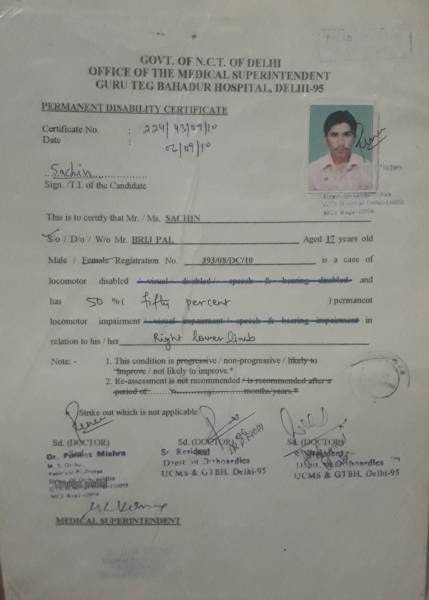 GOVT. OF N.C.T. OF DELHI
OFFICE OF THE MEDICAL SUPERINTENDENT
GURU TEG BAHADUR HOSPITAL, DELHI-95
PERMANENT DISABILITY CERTIFICATE
Certificate No. : 224/43/09/10
Date : 02/09/10
Sachin
Sign. /T.I. of the Candidate
This is to certify that Mr. / Ms. SACHIN
S/o / D/o / W/o Mr. BRIJ PAL Aged 17 years old
Male / Female Registration No. 393/08/DC/10 is a case of
locomotor disabled / visual disabled / speech & hearing disabled and
has 50 %( fifty percent ) permanent
locomotor impairment / visual impairment / speech & hearing impairment in
relation to his / her Right lower limb
Note: - 1. This condition is progressive / non-progressive / likely to
improve / not likely to improve.*
2. Re-assessment is not recommended / is recommended after a
period of months/years.*
Strike out which is not applicable
Sd. (DOCTOR) Sd. (DOCTOR) Sd. (DOCTOR)
Dr. Puneet Mishra Sr Resident
Deptt of Orthopaedics
UCMS & GTBH, Delhi-95 UCMS & GTBH, Delhi-95
MEDICAL SUPERINTENDENT